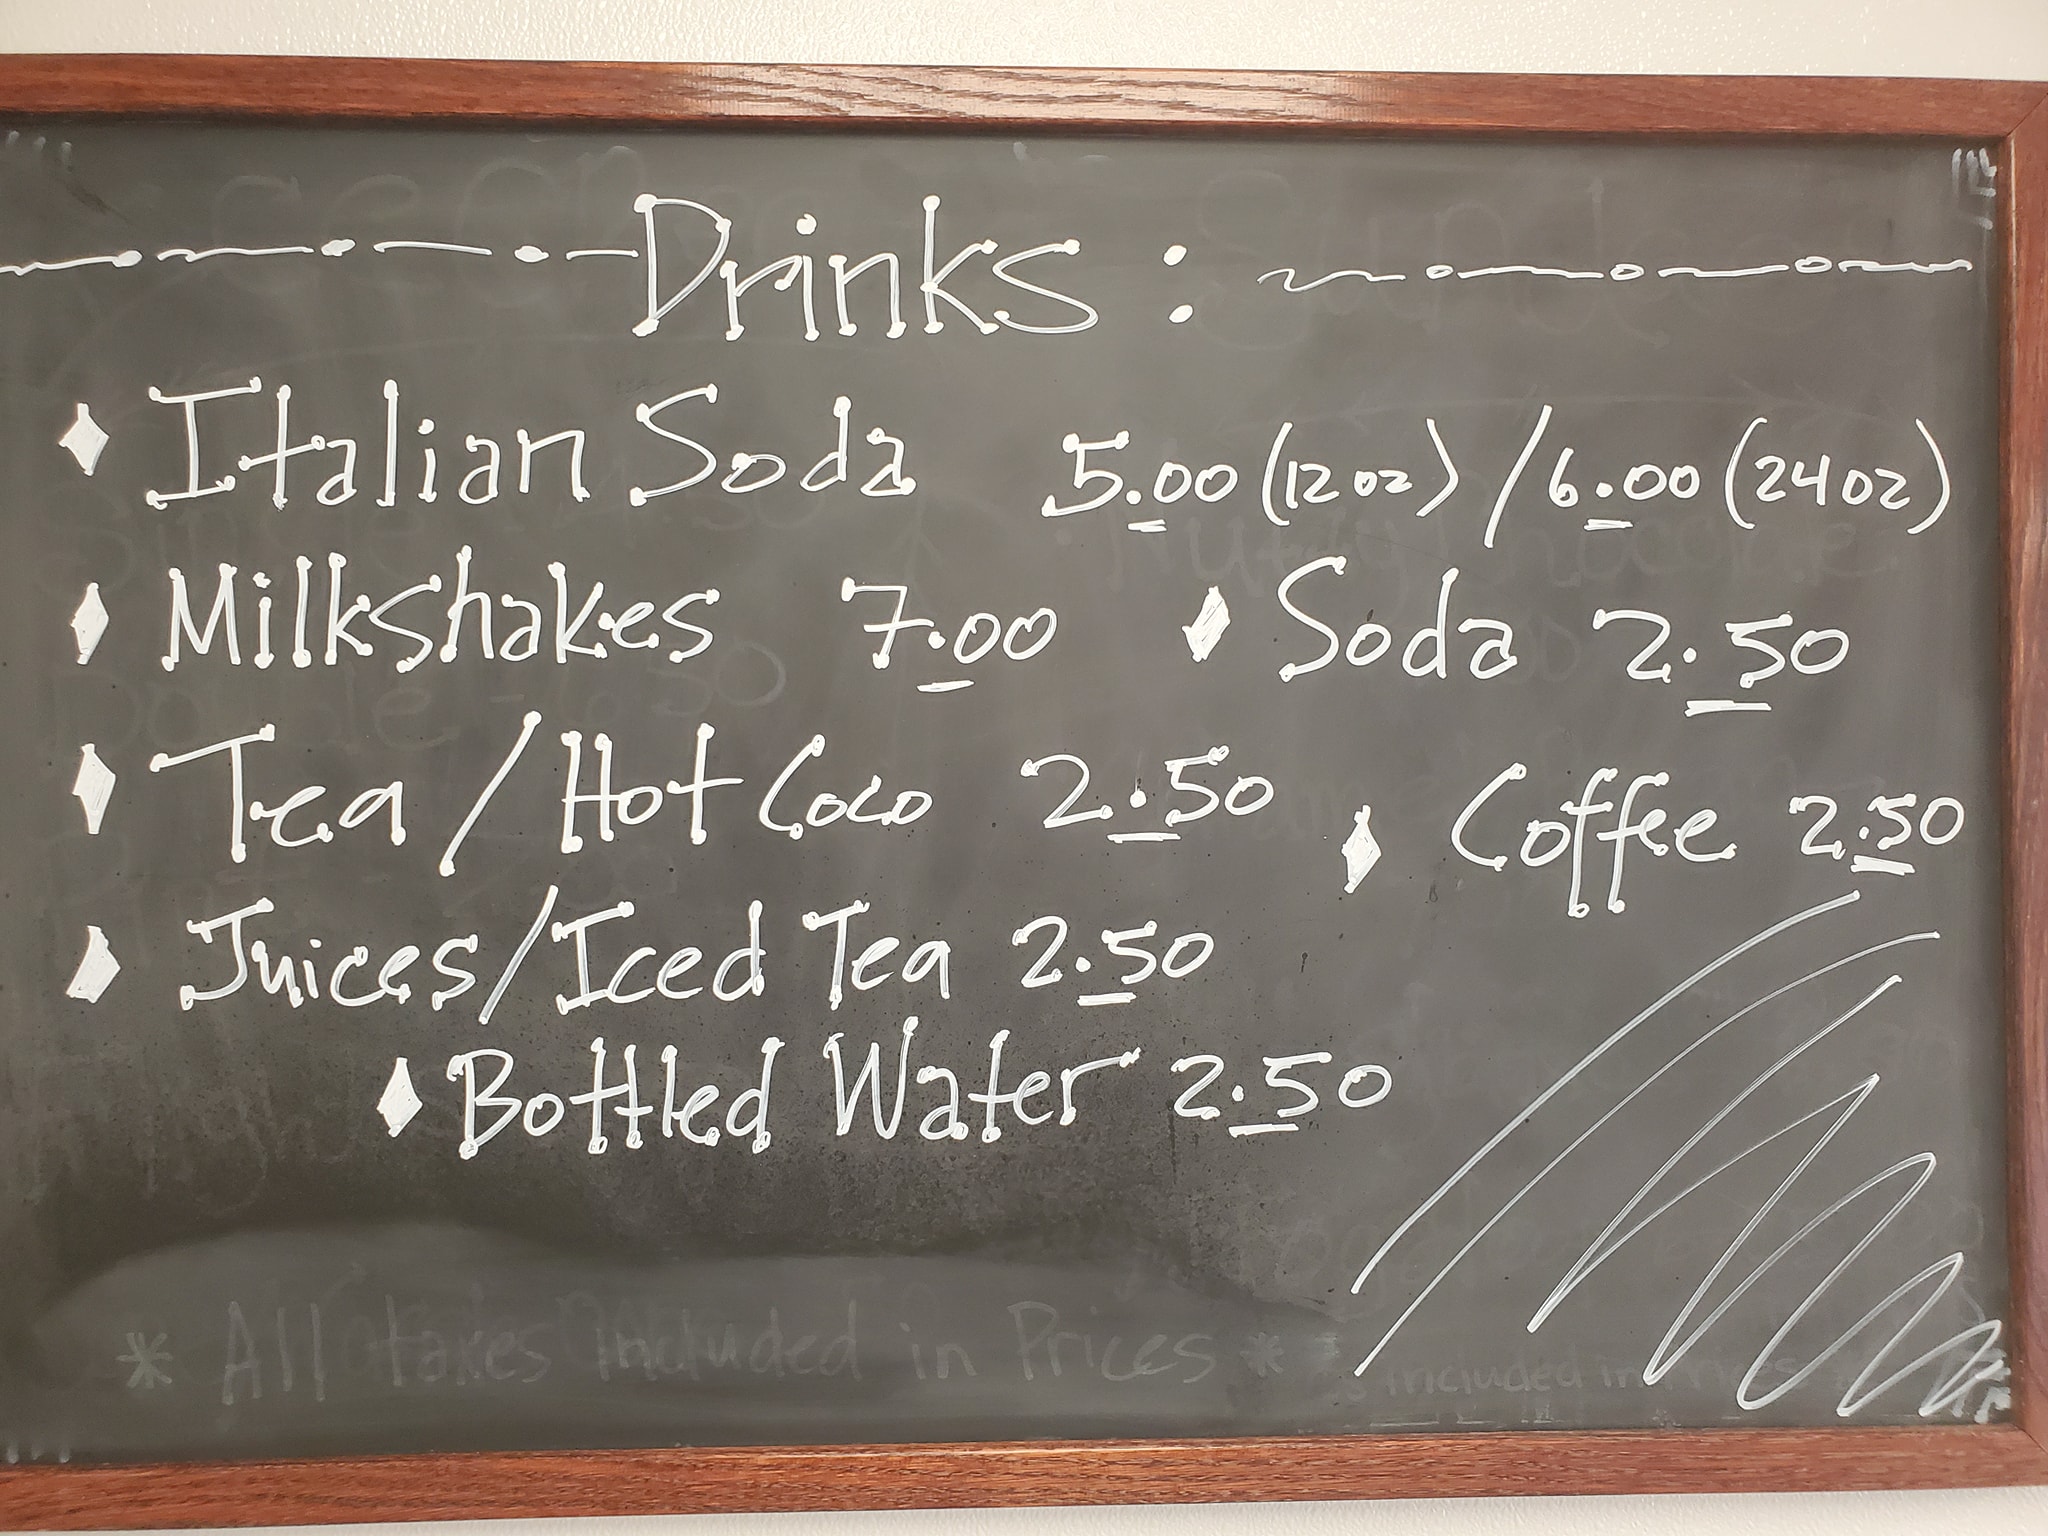 Drinks :
Italian Soda 5.00 (12oz) / 6.00 (24oz)
Milkshakes 7.00 Soda 2.50
Tea / Hot Coco 2.50 Coffee 2.50
Juices/Iced Tea 2.50
Bottled Water 2.50
* All taxes included in Prices *